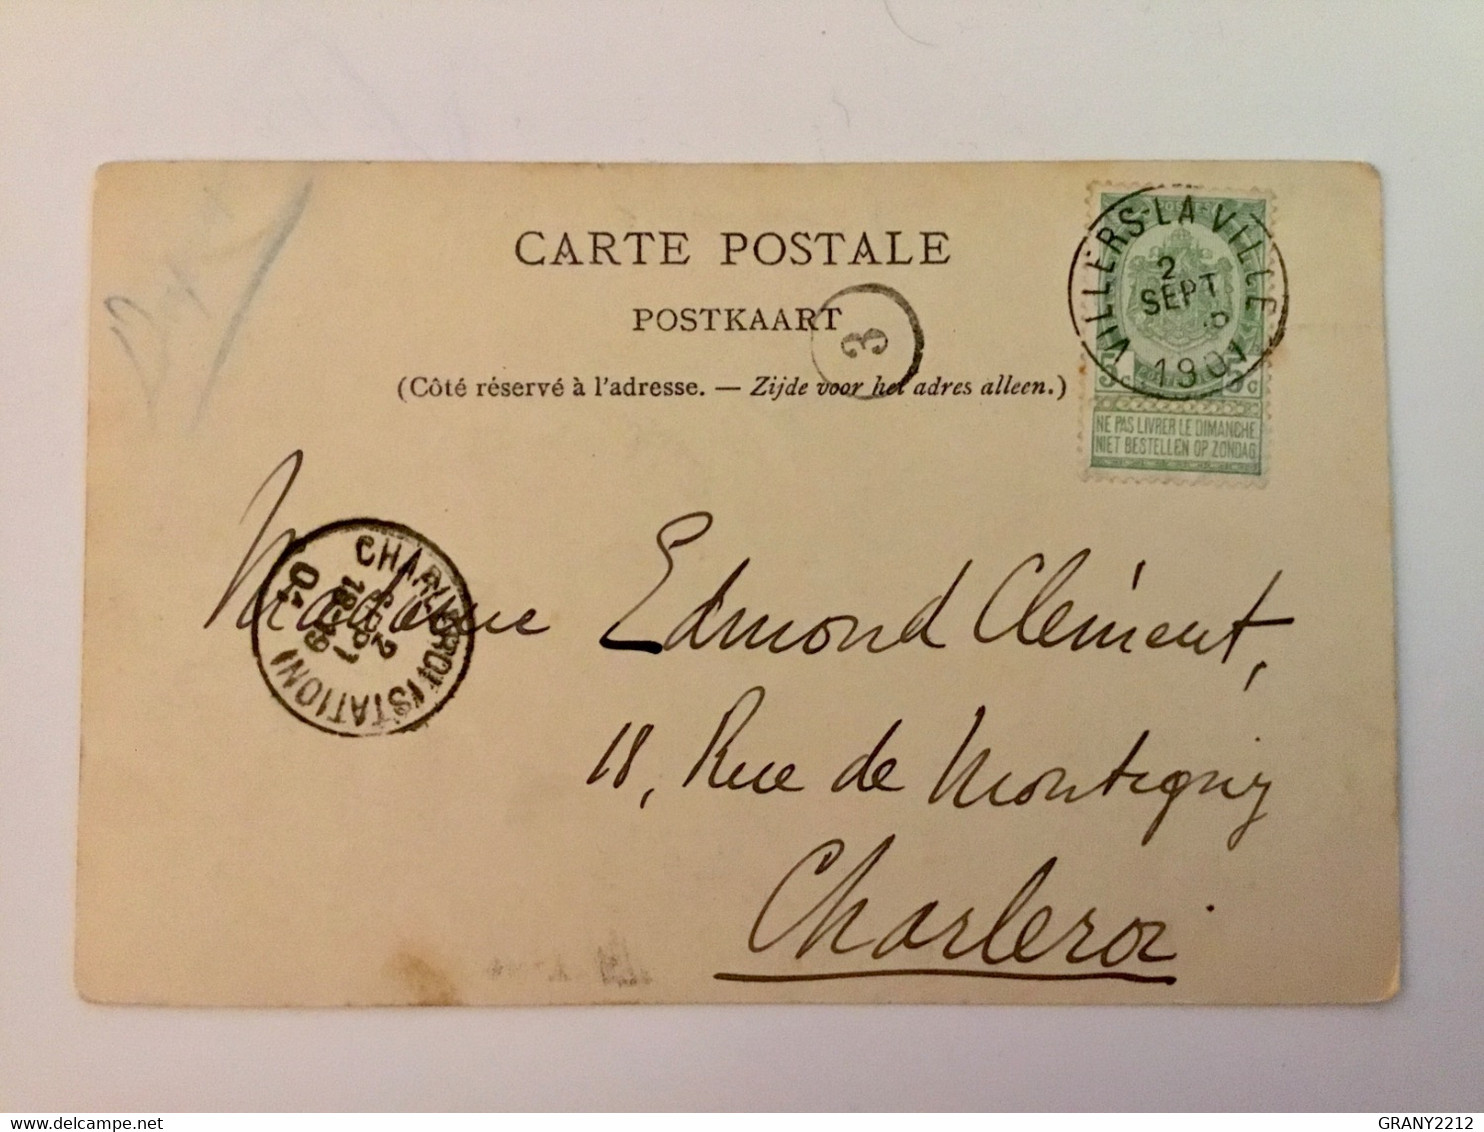 CARTE POSTALE
POSTKAART
(Côté réservé à l'adresse. — Zijde voor het adres alleen.)
3
VILLERS-LA-VILLE
2
SEPT
1901
5c 5c
NE PAS LIVRER LE DIMANCHE
NIET BESTELLEN OP ZONDAG
CHARLEROI (STATION)
Madame Edmond Clément,
18, Rue de Montigny
Charleroi
GRANY2212